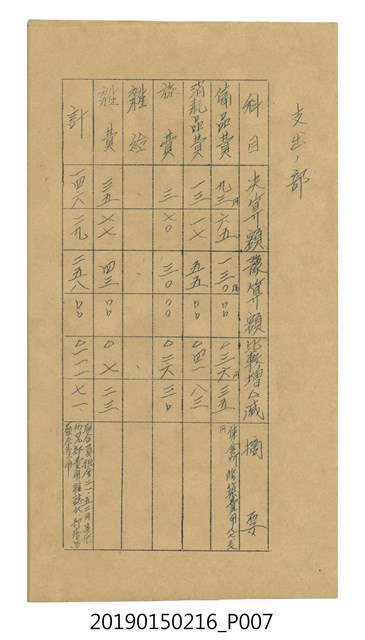 支出ノ部
科目 決算額 豫算額 比較増△減 摘要
備品費 九三六五 一三〇〇〇 △三六三五
消耗品費 一三一七 五五〇〇 △四一八三
旅費 三七〇 三〇〇〇 △二六三〇
雑給
雑費 三五七七 四三〇〇 △七二三
計 一四六二九 二五八〇〇 △一一一七一
20190150216_P007